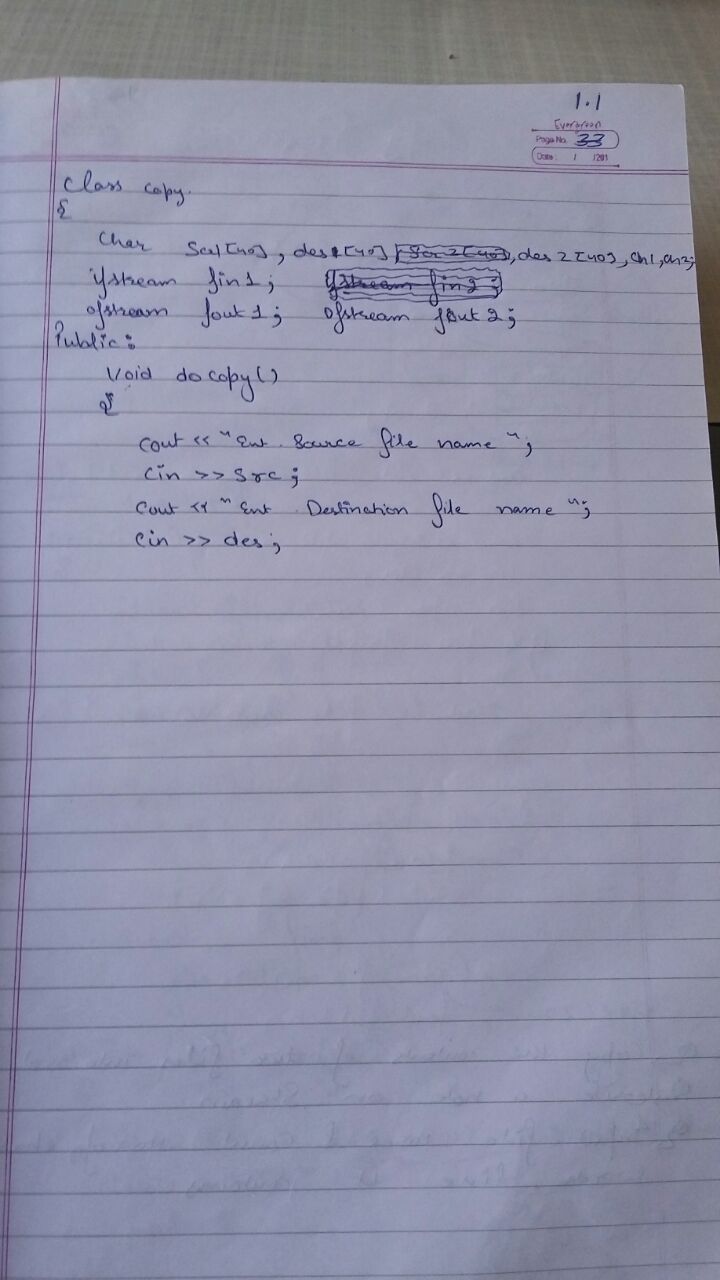 1.1
Evergreen
Page No. 33
Date: / /201
class copy.
{
char Scr1[40], des1[40], des2[40], ch1, ch2;
ifstream fin1;
ofstream fout1; ofstream fout2;
Public:
void do copy()
{
cout << "Ent. Source file name";
cin >> src;
cout << "Ent. Destination file name";
cin >> des;